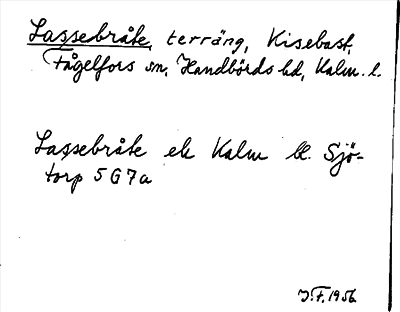 Lassebråte, terräng, Kisebast,
Fågelfors sn, Handbörds hd, Kalm. l.
Lassebråte ek Kalm bl. Sjö-
torp 5G7a
J.F. 1956